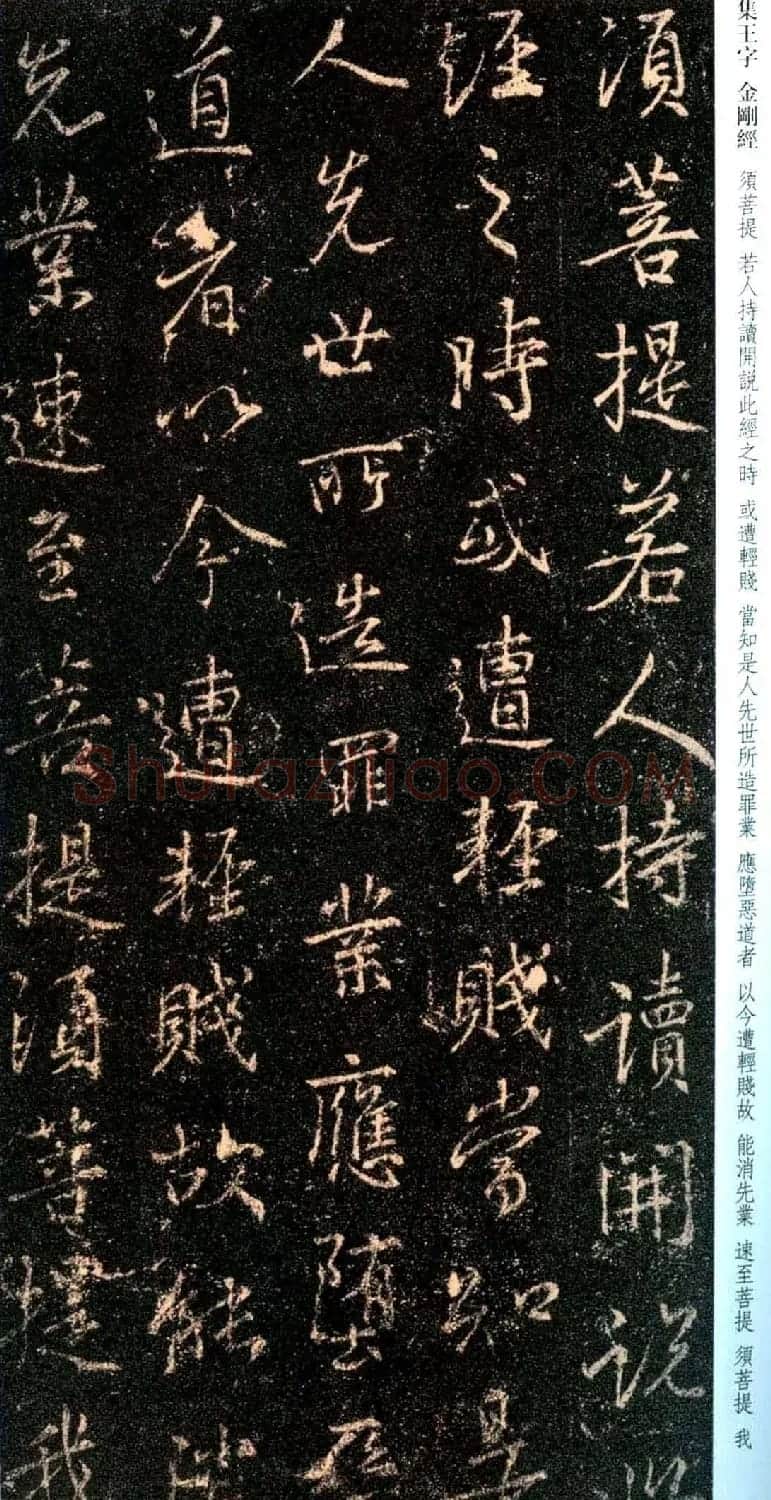 須菩提若人持讀開説此
經之時或遭輕賤當知是
人先世所造罪業應墮惡
道者以今遭輕賤故能消
先業速至菩提須菩提我
集王字 金剛經 須菩提 若人持讀開説此經之時 或遭輕賤 當知是人先世所造罪業 應墮惡道者 以今遭輕賤故 能消先業 速至菩提 須菩提 我
Shufaziliao.COM